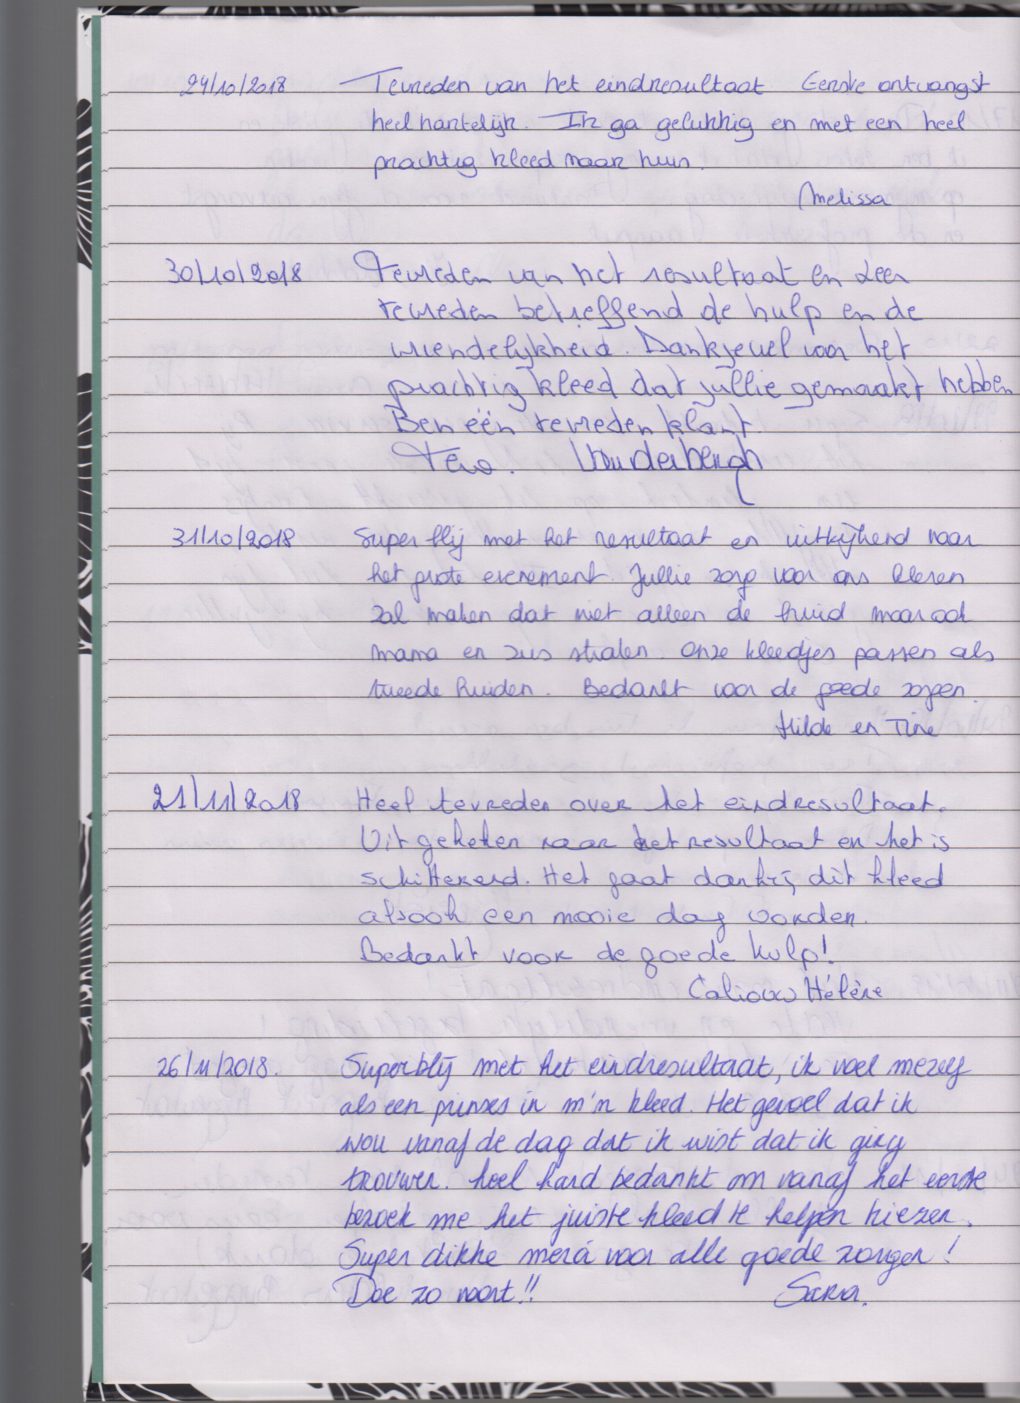 24/10/2018 Tevreden van het eindresultaat Eerste ontvangst
heel hartelijk. Ik ga gelukkig en met een heel
prachtig kleed naar huis.
Melissa
30/10/2018 Tevreden van het resultaat en zeer
tevreden betreffend de hulp en de
vriendelijkheid. Dankjewel voor het
prachtig kleed dat jullie gemaakt hebben
Ben één tevreden klant.
31/10/2018 Super blij met het resultaat en uitkijkend naar
het grote evenement. Jullie zorg voor ons kleren
zal maken dat niet alleen de bruid maar ook
mama en zus stralen. Onze kleedjes passen als
tweede huiden. Bedankt voor de goede zorgen.
Hilde en Tine
21/11/2018 Heel tevreden over het eindresultaat.
Uitgekeken naar het resultaat en het is
schitterend. Het gaat dankzij dit kleed
alsook een mooie dag worden.
Bedankt voor de goede hulp!
Caliouw Hélène
26/11/2018. Superblij met het eindresultaat, ik voel mezelf
als een prinses in m'n kleed. Het gevoel dat ik
wou vanaf de dag dat ik wist dat ik ging
trouwen. heel hard bedankt om vanaf het eerste
bezoek me het juiste kleed te helpen kiezen.
Super dikke merci voor alle goede zorgen!
Doe zo voort!! Sara.